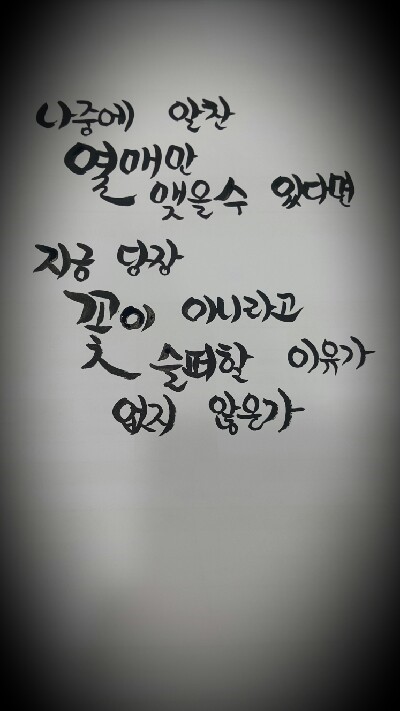 나중에 알찬
열매만
맺을수 있다면
지금 당장
꽃이 아니라고
슬퍼할 이유가
없지 않은가